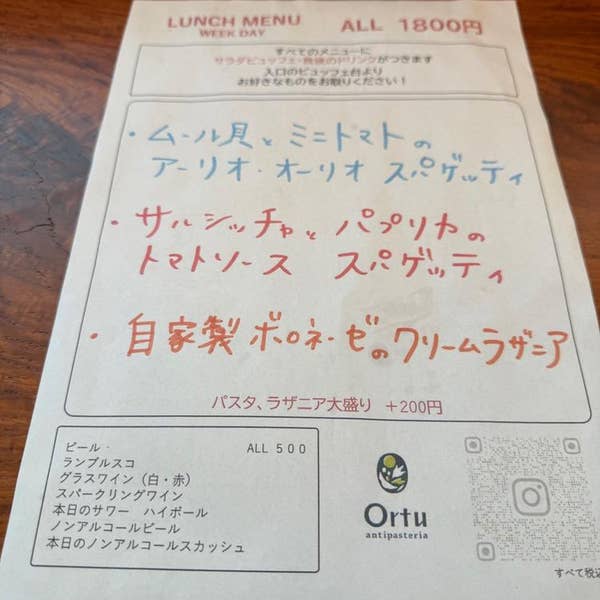 LUNCH MENU
WEEK DAY
ALL 1800円
すべてのメニューに
サラダビュッフェ・食後のドリンクがつきます
入口のビュッフェ台より
お好きなものをお取りください！
・ムール貝とミニトマトの
アーリオ・オーリオ スパゲッティ
・サルシッチャとパプリカの
トマトソース スパゲッティ
・自家製ボロネーゼのクリームラザニア
パスタ、ラザニア大盛り +200円
ビール・ ALL 500
ランブルスコ
グラスワイン（白・赤）
スパークリングワイン
本日のサワー ハイボール
ノンアルコールビール
本日のノンアルコールスカッシュ
Ortu
antipasteria
すべて税込